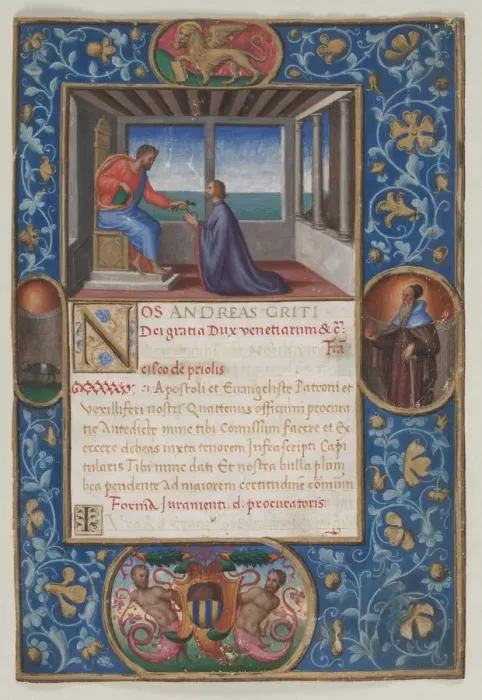 NOS ANDREAS GRITI
Dei gratia Dux venetiarum & c̃:
Frã
cisco de priolis
Apostoli et Evangeliste Patroni et
vexilliferi nostri Quattenus officium procura
tie Antedicte nunc tibi Comissum facere et Ex
ercere debeas iuxta tenorem Infrascripti Capi
tularis Tibi nunc dati Et nostra bulla plum
bea pendente Ad maiorem certitudinẽ cõmuniti
Forma Juramenti d. procuratoris